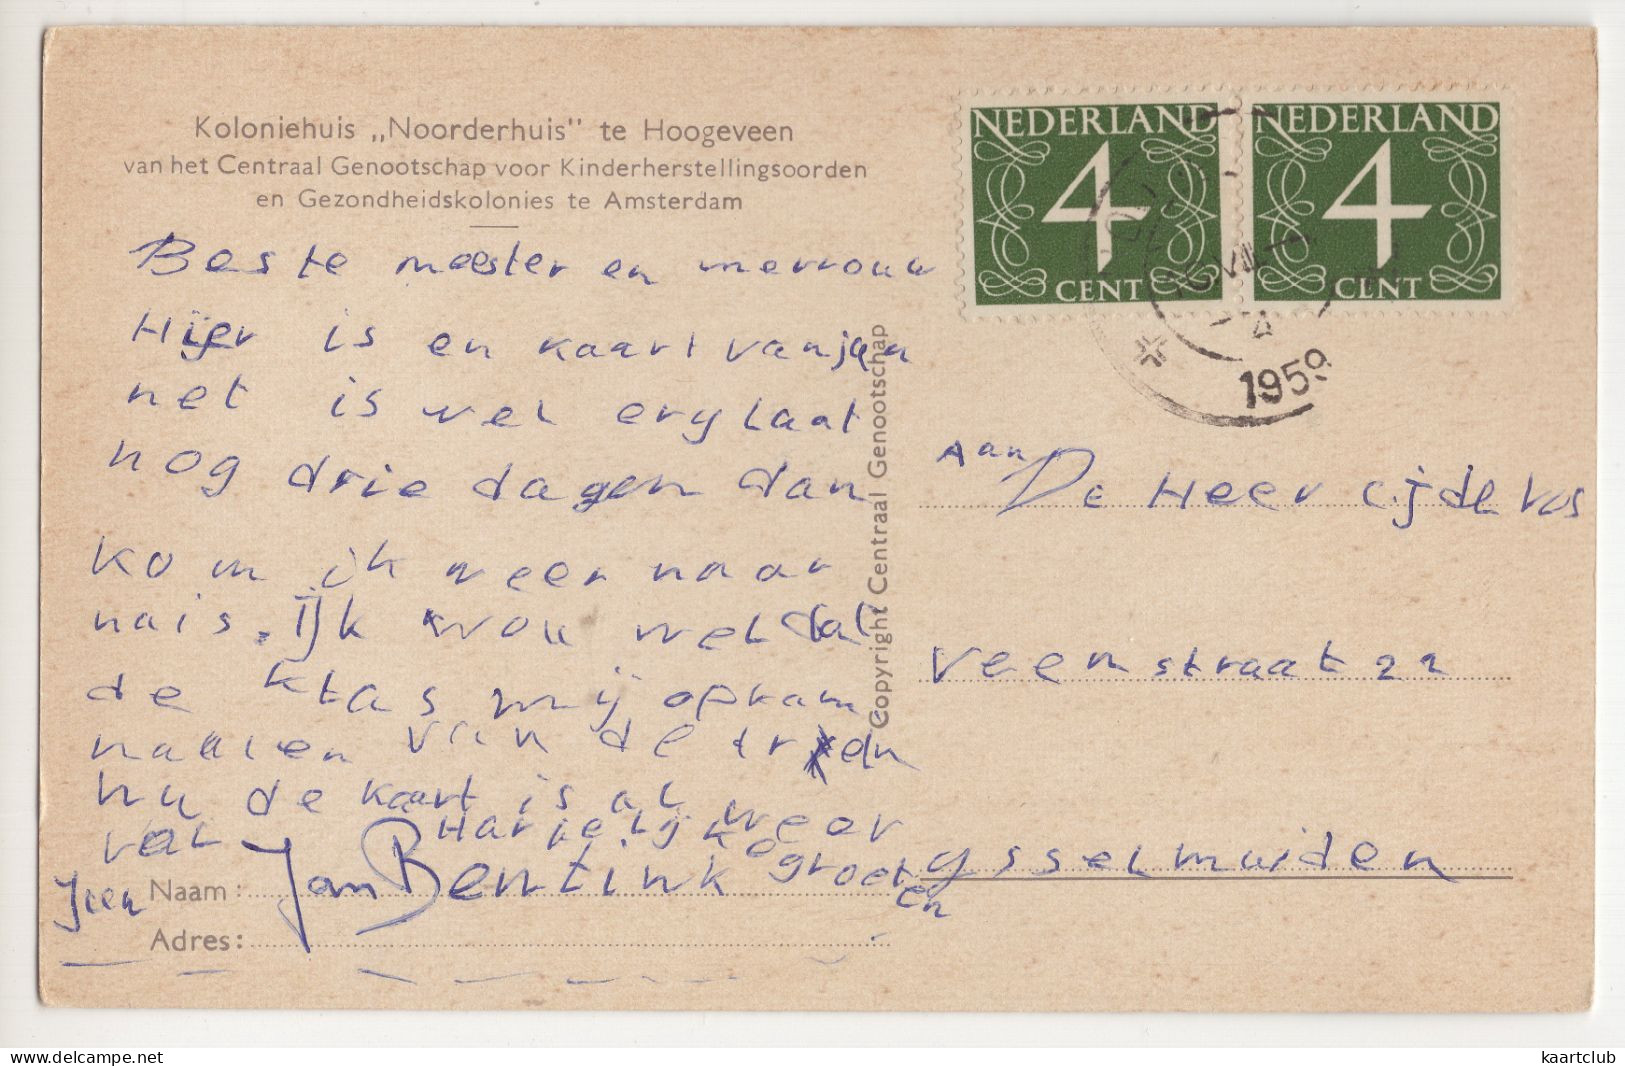 Koloniehuis „Noorderhuis" te Hoogeveen
van het Centraal Genootschap voor Kinderherstellingsoorden
en Gezondheidskolonies te Amsterdam
Beste meester en mevrouw
Hier is en kaart van jan
net is wel erg laat
nog drie dagen dan
kom ik weer naar
huis. IJk wou wel dat
de klas mij op kwam
haalen van de trein
nu de kaart is al weer
vol Hartelijke groeten
Jan Bentink
Naam:
Adres:
Copyright Centraal Genootschap
NEDERLAND
4
CENT
NEDERLAND
4
CENT
1959
Aan De Heer
Veenstraat 22
ysselmuiden
delcampe.net
kaartclub